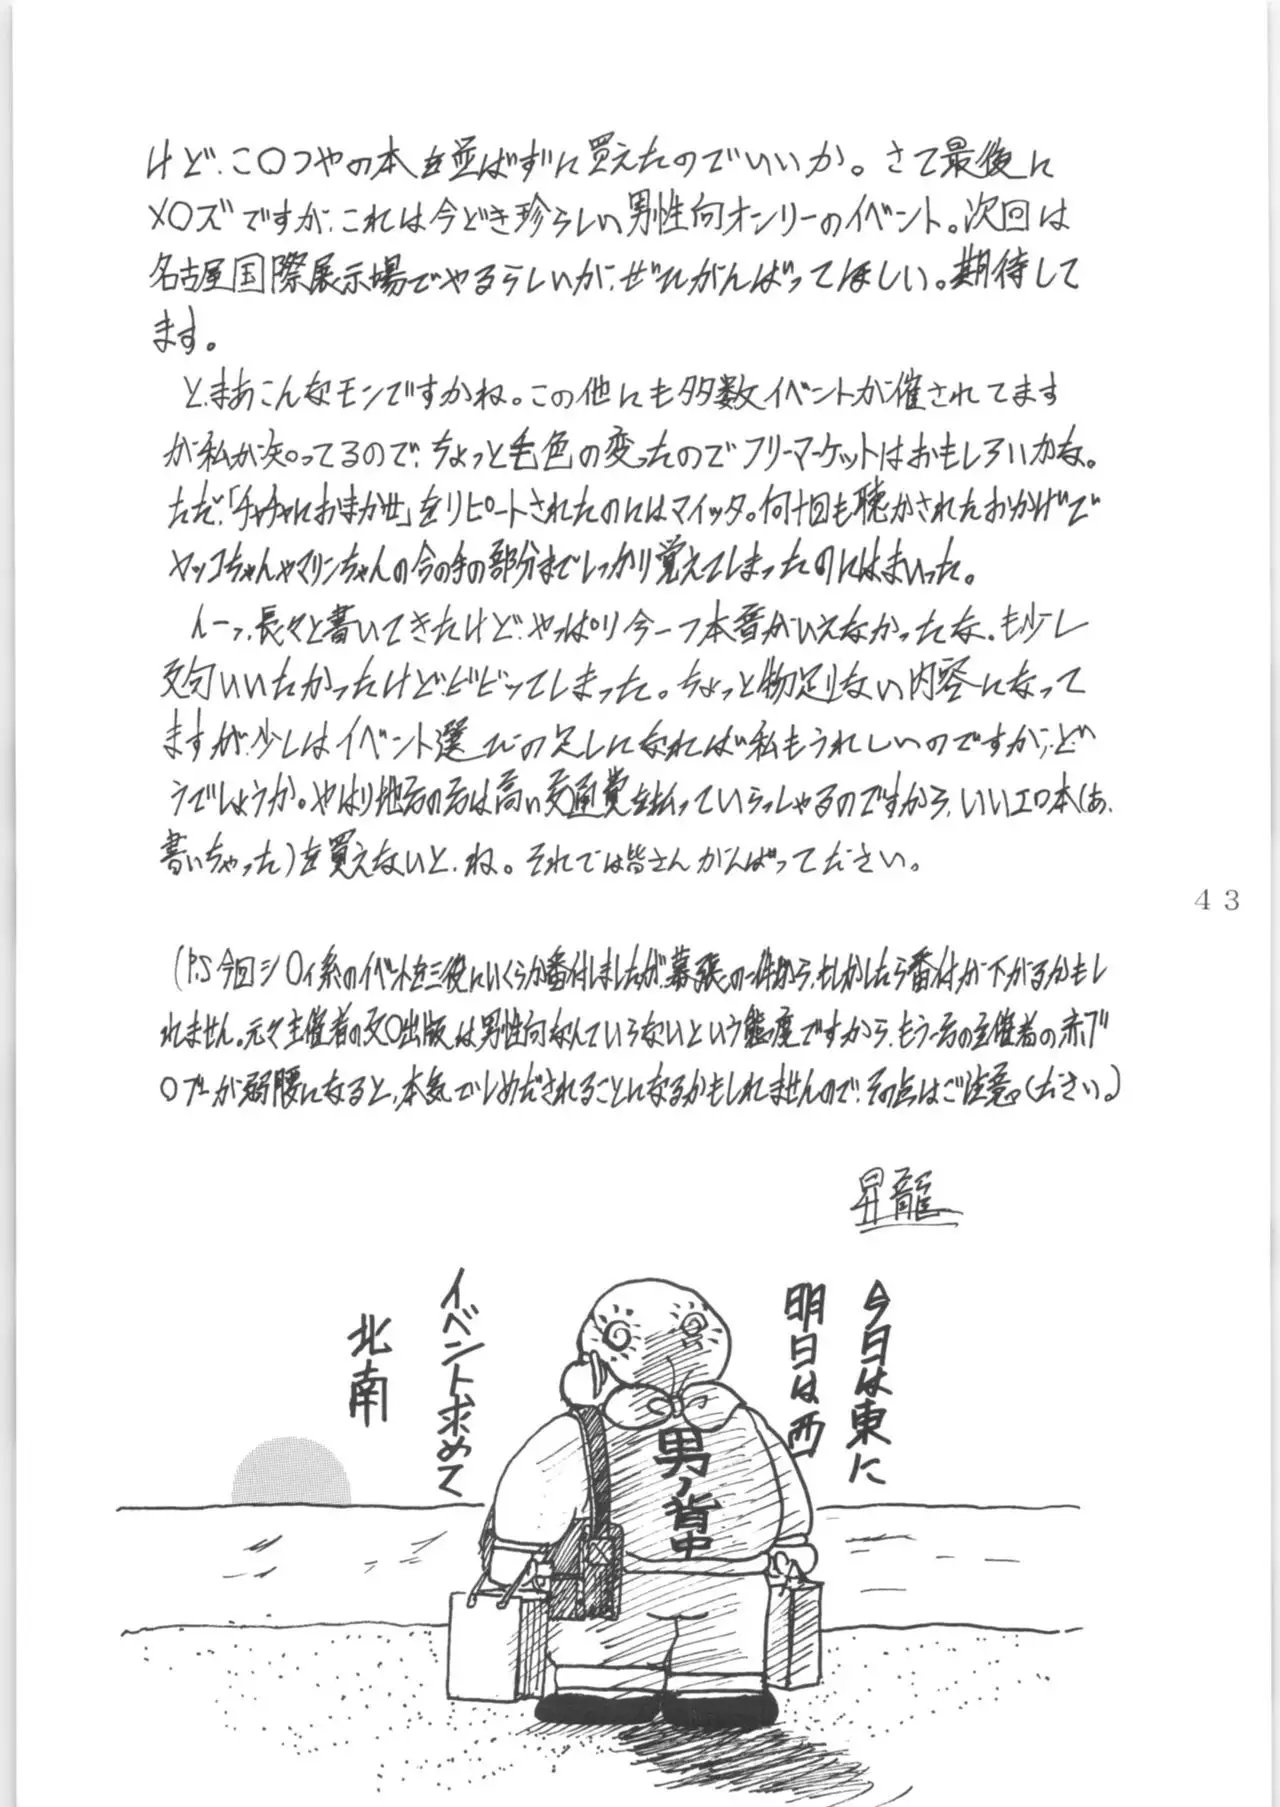 けど、こ〇つやの本を並ばずに買えたのでいいか。さて最後に
メ〇ズですが、これは今どき珍らしい男性向オンリーのイベント。次回は
名古屋国際展示場でやるらしいが、ぜひがんばってほしい。期待して
ます。
と、まあこんなモンですかね。この他にも多数イベントが催されてます
が私が知ってるので、ちょっと毛色の変ったのでフリーマーケットはおもしろいかな。
ただ、「チャチャにおまかせ」をリピートされたのにはマイッタ。何十回も聴かされたおかげで
ヤッコちゃんやマリンちゃんの合の手の部分までしっかり覚えてしまったのにはまいった。
んーっ、長々と書いてきたけど、やっぱり今一つ本音がいえなかったな。も少し
文句いいたかったけどビビってしまった。ちょっと物足りない内容になって
ますが、少しはイベント選びの足しになれば私もうれしいのですが、ど
うでしょうか。やはり地方の方は高い交通費を払っていらっしゃるのですから、いいエロ本(あ、
書いちゃった)を買えないと、ね。それでは皆さんがんばってください。
43
(P.S 今回シ〇ィ系のイベントを三役にいくらか番付しましたが、幕張の一件から、もしかしたら番付が下がるかもし
れません。元々主催者の文〇出版は男性向なんていらないという態度ですから、もう一方の主催者の赤ブ
〇ブーが弱腰になると、本気でしめだされることになるかもしれませんので、その点はご注意ください。)
昇龍
今日は東に
明日は西
イベント求めて
北南
男ノ背中